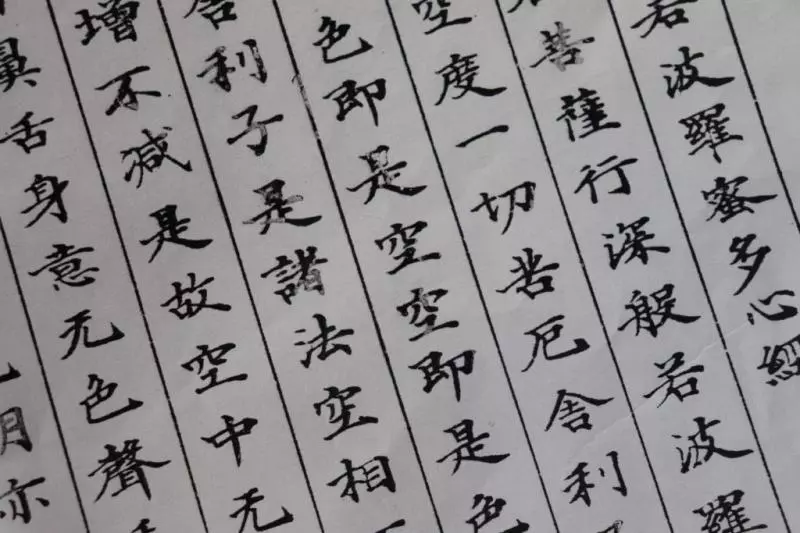 若波羅蜜多心經
菩薩行深般若波羅
空度一切苦厄舍利
色即是空空即是色
舍利子是諸法空相
增不减是故空中无
鼻舌身意无色聲
明亦